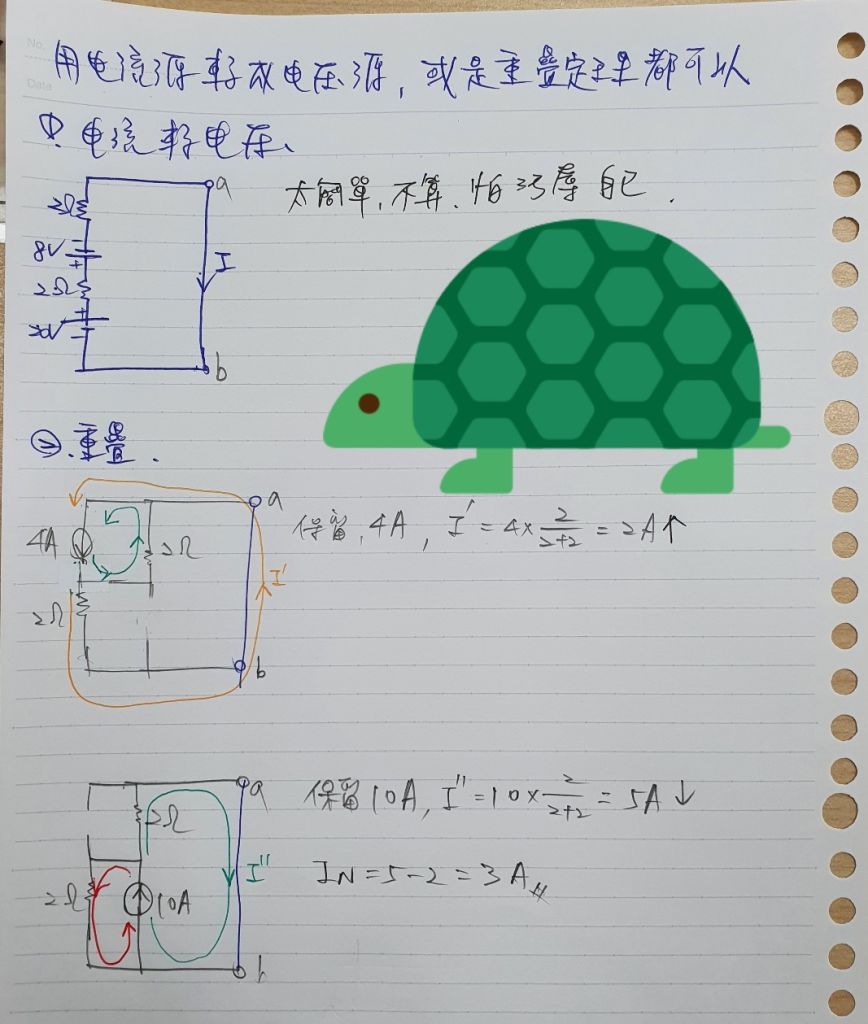 No.
Date
用电流源転成电压源，或是重疊定理都可以
①. 电流転电压、
太簡單，不算，怕污辱自己．
a
2Ω
8V
+
I
2Ω
+
20V
b
②. 重疊．
a
保留 4A，I' = 4×2/(2+2) = 2A↑
4A
2Ω
I'
2Ω
b
a
保留10A，I'' = 10×2/(2+2) = 5A↓
2Ω
I''
IN = 5-2 = 3A
2Ω
10A
b